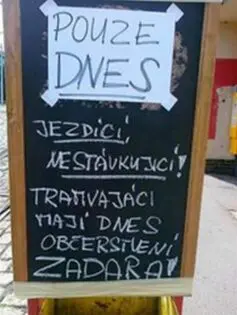 POUZE
DNES
JEZDÍCÍ,
NESTÁVKUJÍCÍ!
TRAMVAJÁCI
MAJÍ DNES
OBČERSTVENÍ
ZADARA!